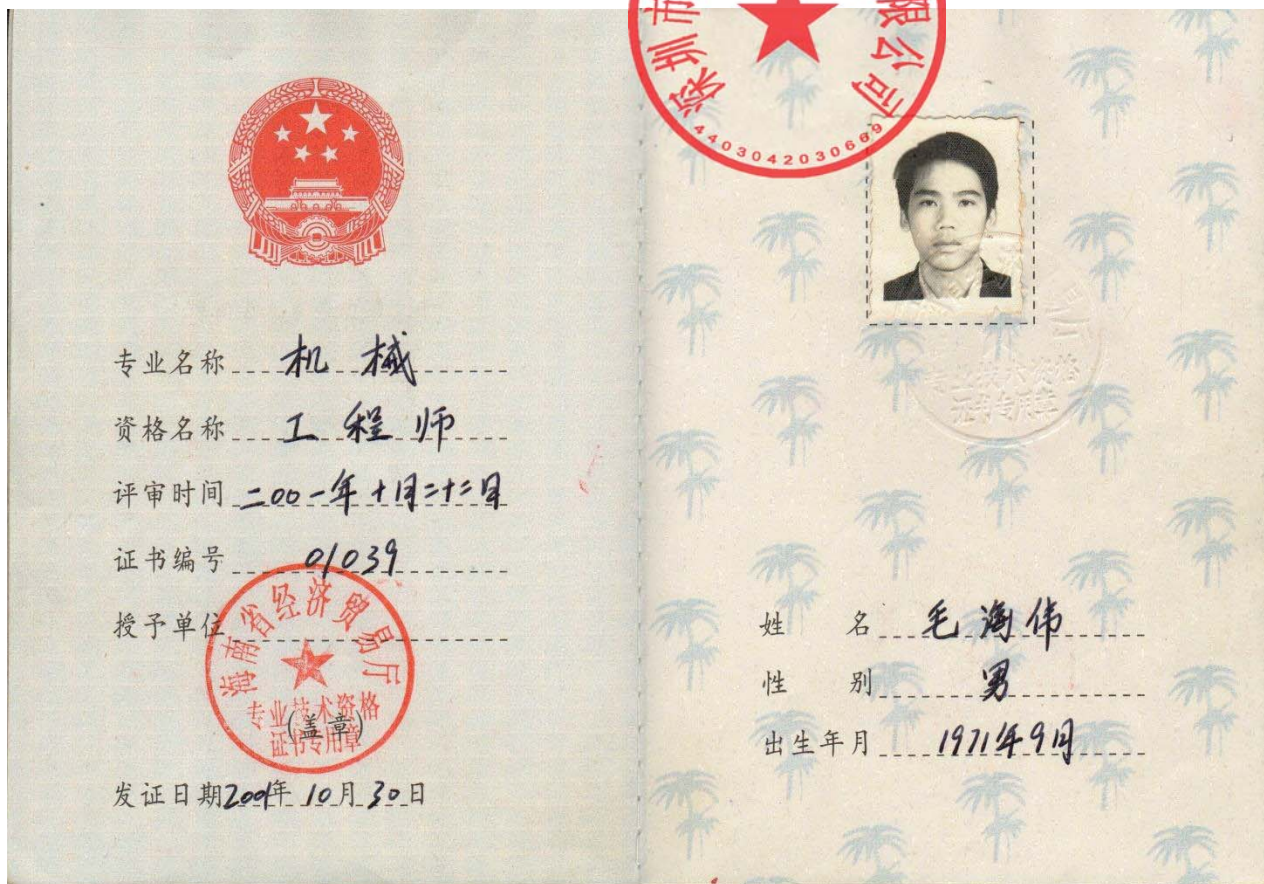 专业名称 机械
资格名称 工程师
评审时间 二00一年十月二十二日
证书编号 01039
授予单位
海南省经济贸易厅
专业技术资格
证书专用章
(盖章)
发证日期2001年10月30日
深圳市
限公司
4403042030689
专业技术资格
证书专用章
姓名 毛海伟
性别 男
出生年月 1971年9月